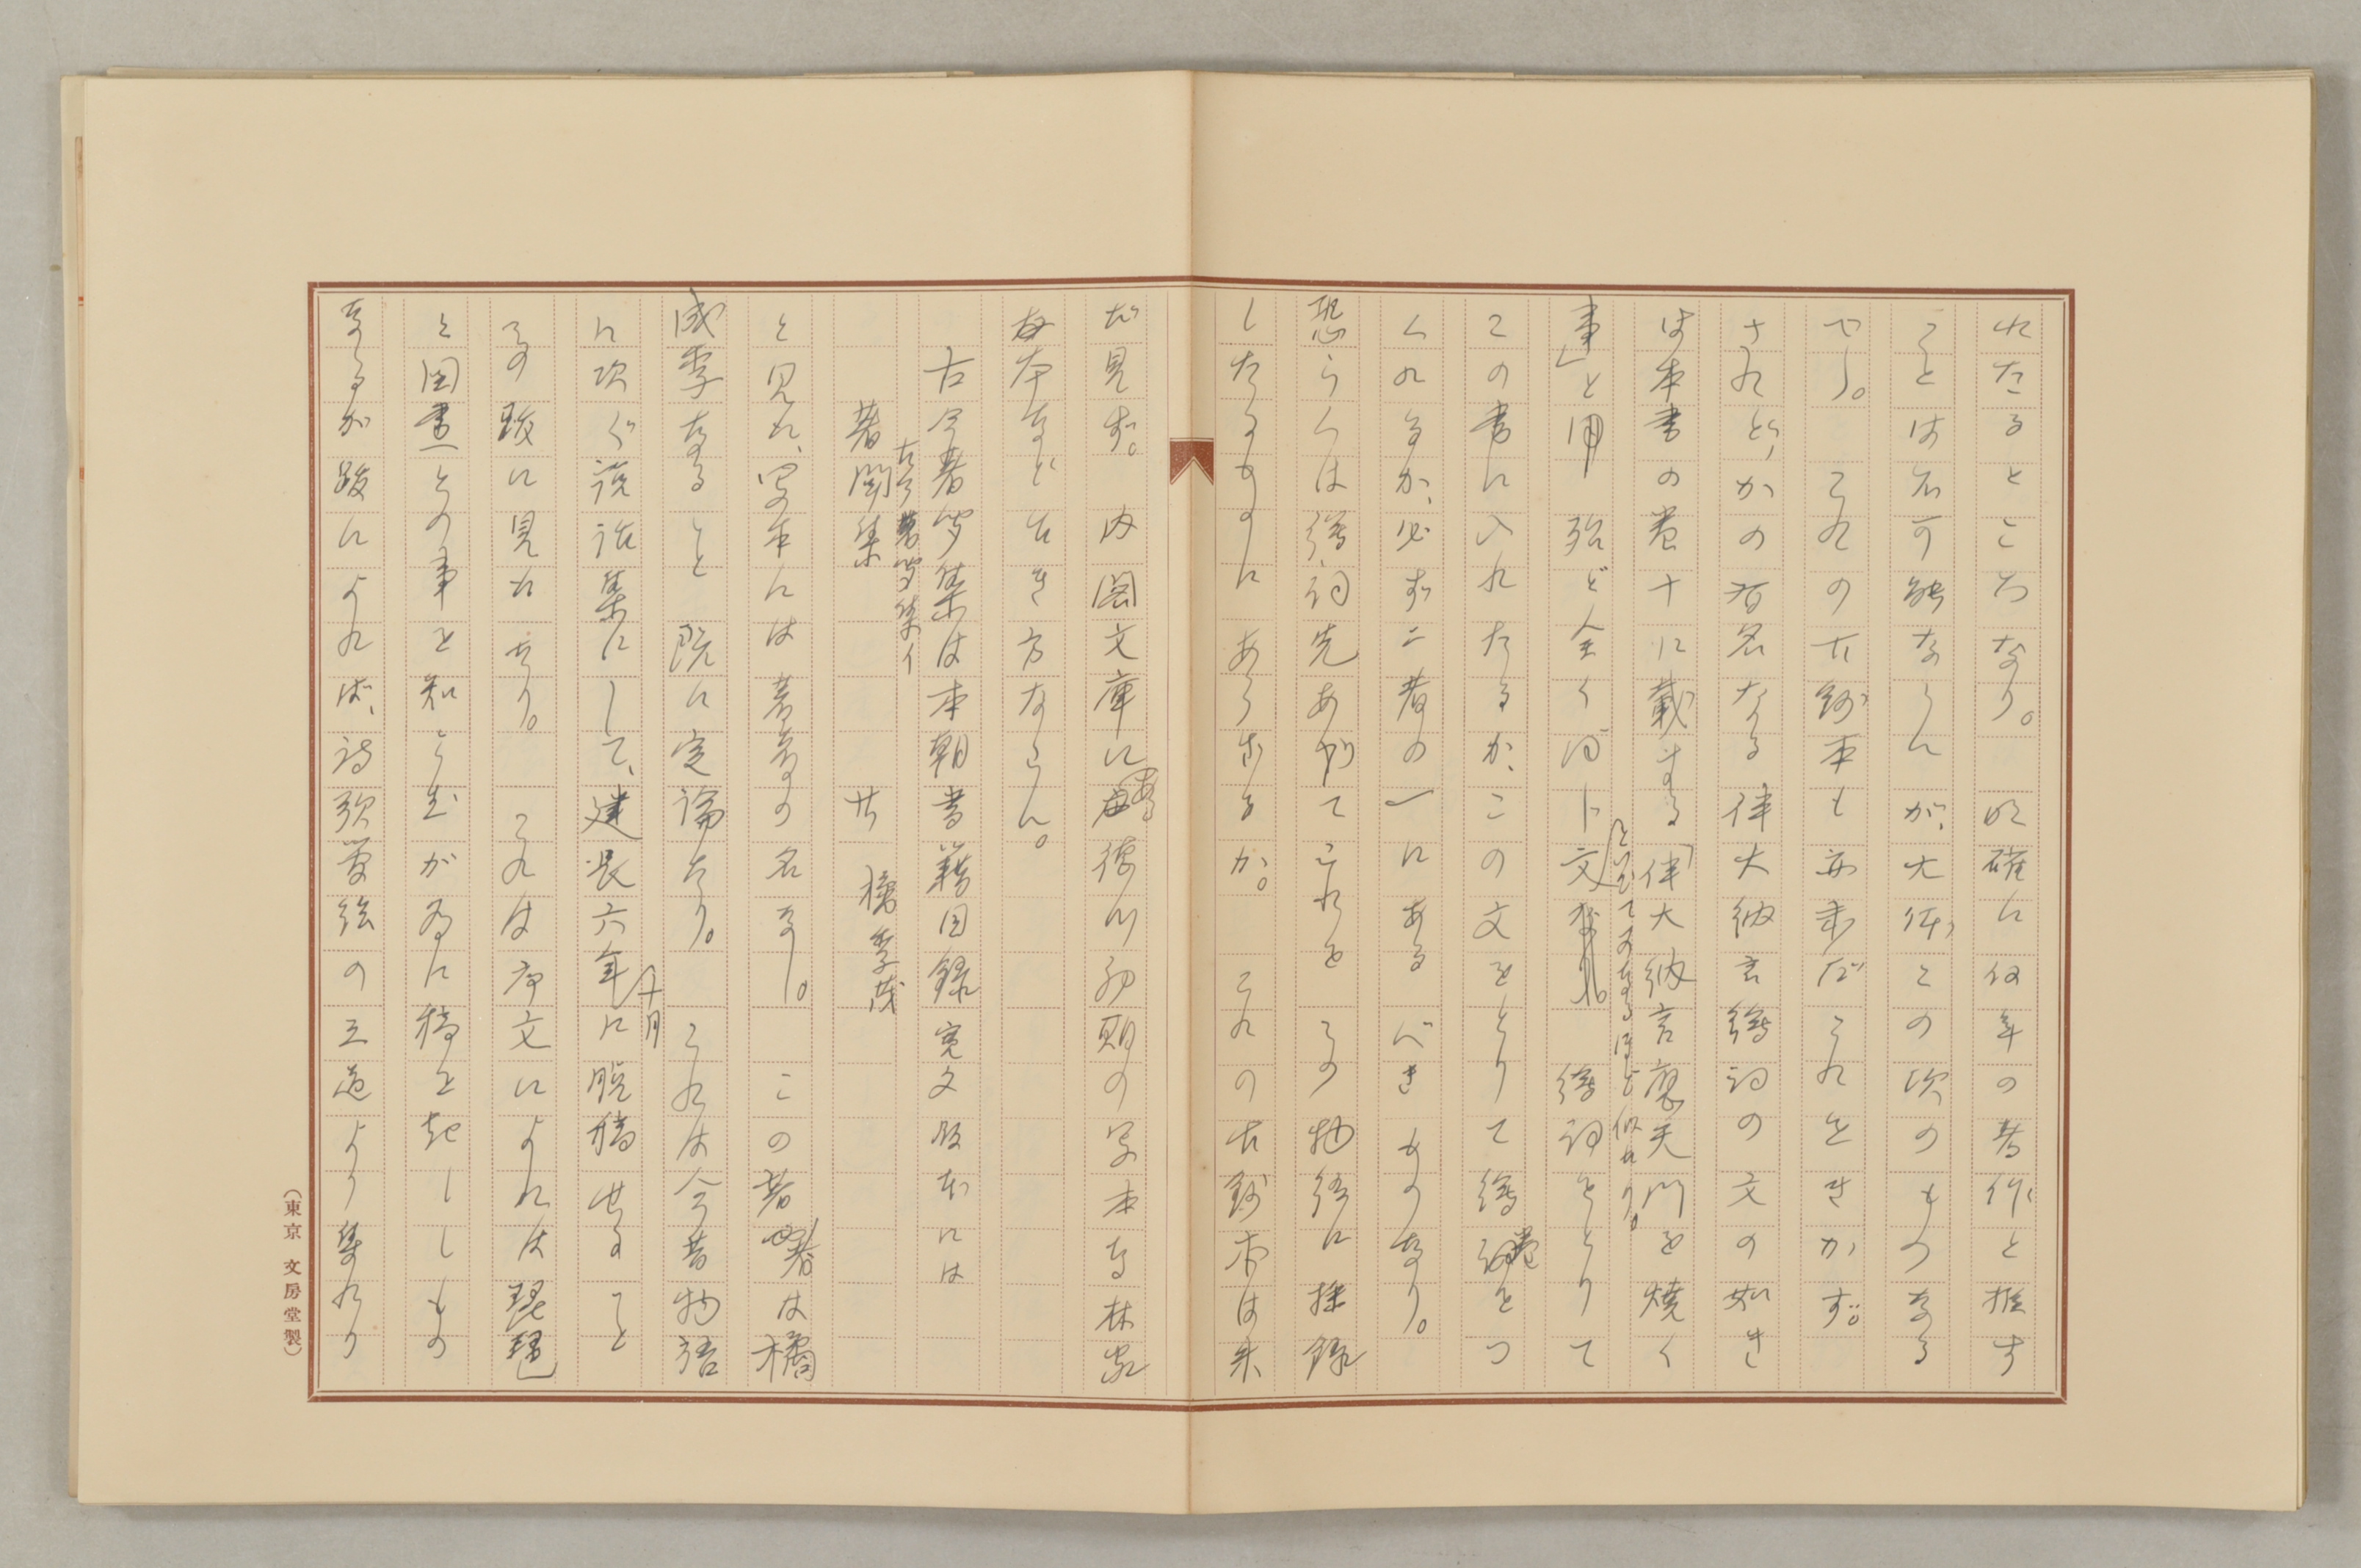 れたるところなり。 明確に何年の著作と推す
ことは不可能ならんが、大体との次のものなる
べし。 これの古鈔本も亦未だこれをきかず。
されど、かの有名なる伴大納言繪詞の文の如き
は本書の巻十に載する「伴大納言應天門を焼く
事」と 殆ど全く同じ文
といひてよきほど似たり。
繪詞をとりて
この書に入れたるか、この文をとりて繪巻をつ
くれるか、必ず二者の一にあるべきものなり。
恐らくは繪詞先ありてこれをこの物語に採録
したるものにあらざるか。 これの古鈔本は未
だ見ず。 内閣文庫にある徳川初期の写本な林家
本など古き方ならん。
古今著聞集は本朝書籍目録寛文版本には
古今著聞集イ
著聞集 廿 橘季茂
と見え、写本には著者の名なし。 この著者は橘
成季なること既に定論なり。 これは今昔物語
に次ぐ説話集にして、建長六年
十月
に脱稿せること
その跋に見えたり。 これは序文によれば琵琶
と図畫との事を知らむが為に稿を起ししもの
なるが跋によれば、詩歌管絃の三道より集れり
(東京 文房堂製)